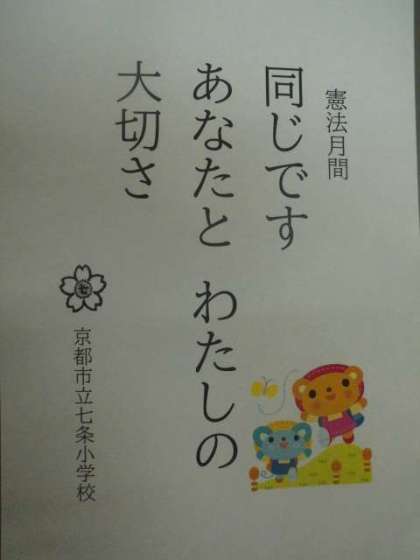 憲法月間
同じです
あなたと わたしの
大切さ
七
京都市立七条小学校